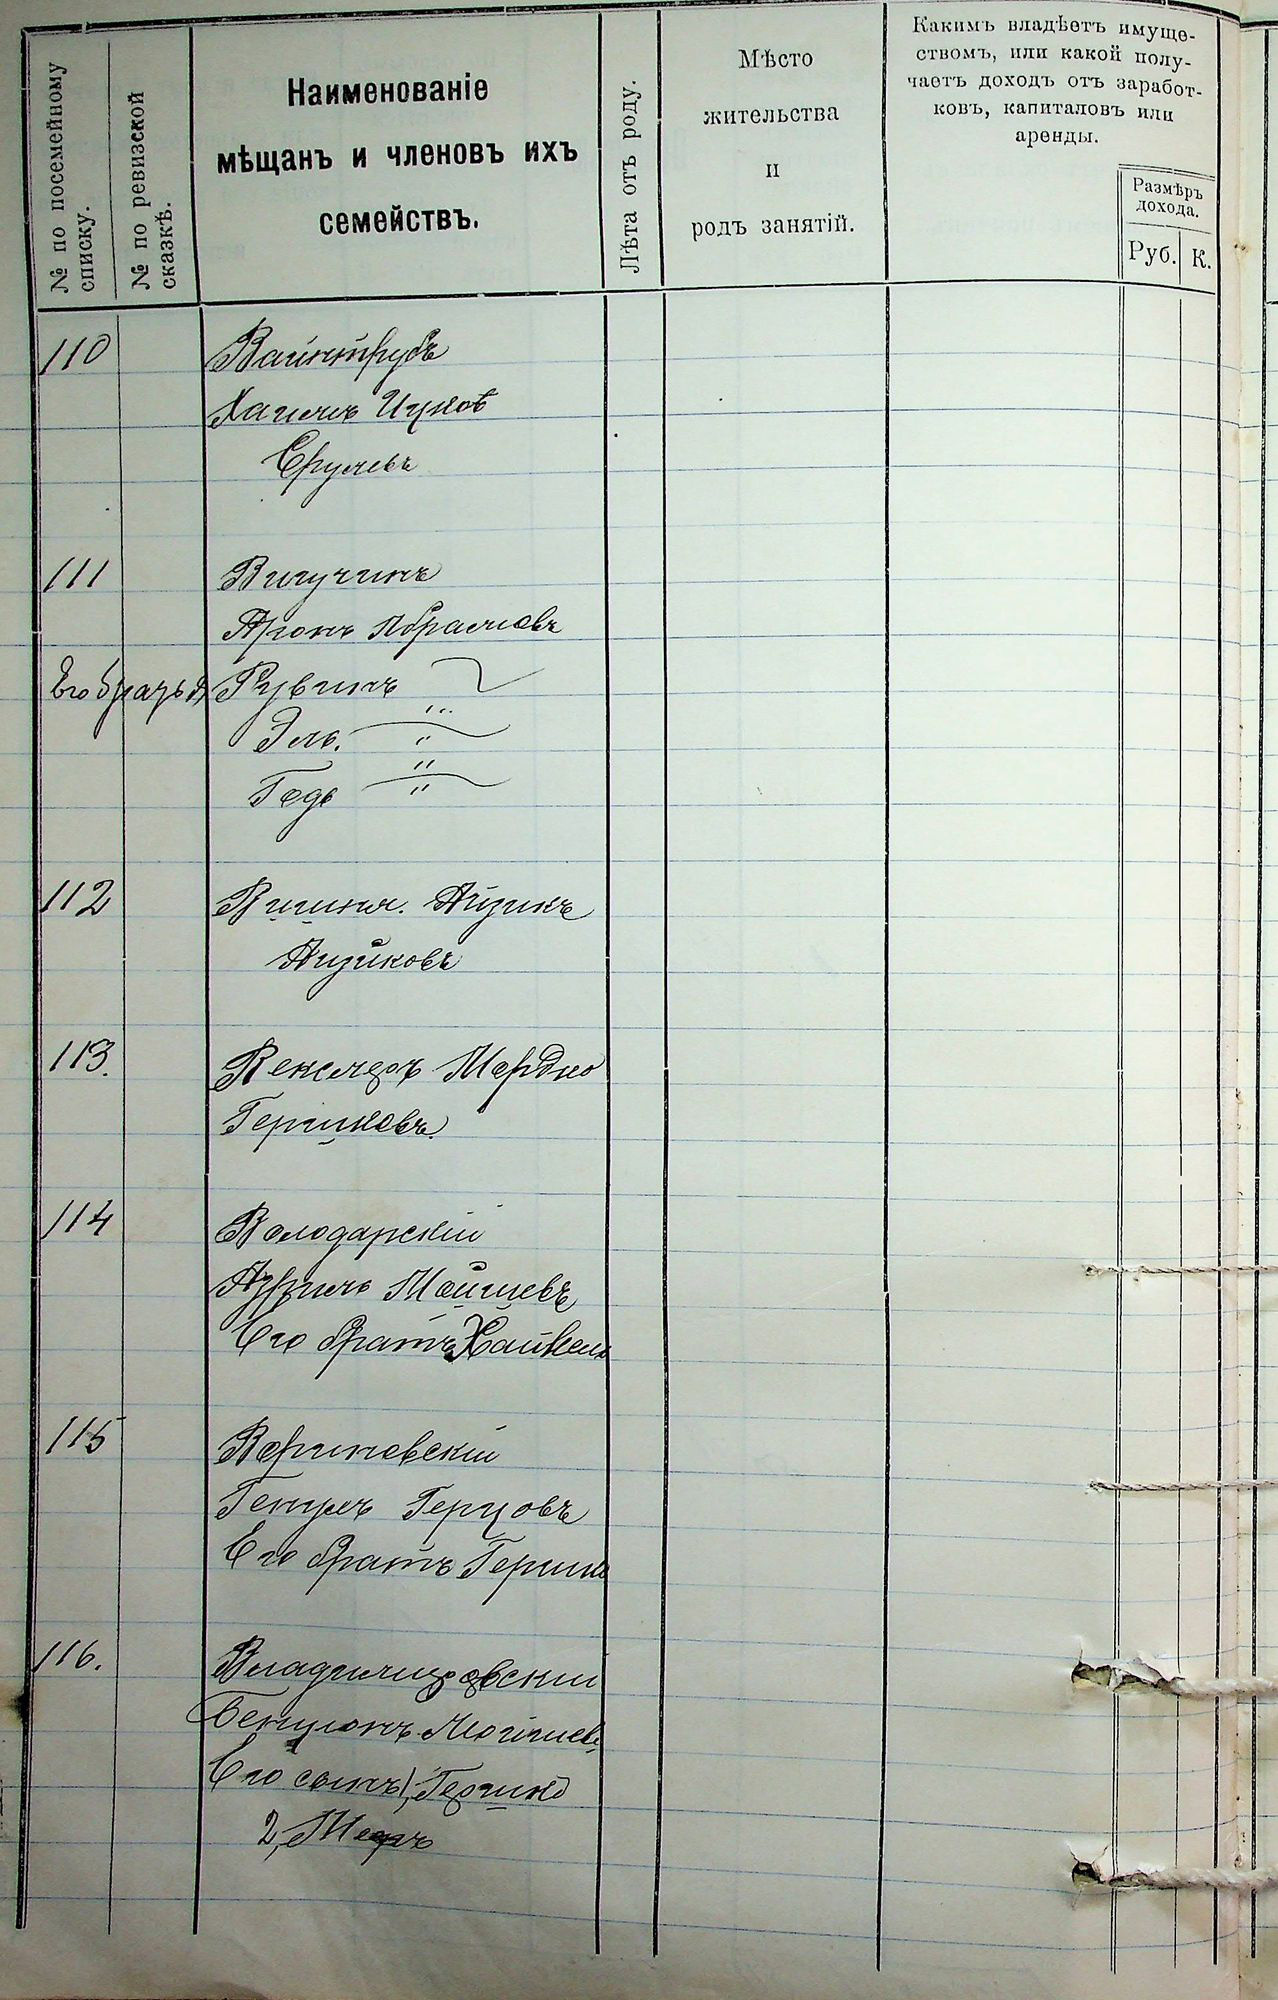 № по посемейному
списку.
№ по ревизской
сказкѣ.
Наименованіе
мѣщанъ и членовъ ихъ
семействъ.
Лѣта отъ роду.
Мѣсто
жительства
и
родъ занятій.
Какимъ владѣетъ имуще-
ствомъ, или какой полу-
чаетъ доходъ отъ заработ-
ковъ, капиталовъ или
аренды.
Размѣръ
дохода.
Руб. К.
110 Вайнтрубъ
Хаимъ Ицков
Срулевъ
111 Вигучинъ
Аронъ Абрамовъ
Его братья Рувинъ
Эль. "
Годъ "
112 Вишня. Айзикъ
Айзиковъ
113. Векслеръ Мордко
Гершковъ
114 Володарскій
Азриль Мойшевъ
Его братъ Хайкель
115 Воршновскій
Генулъ Герцовъ
Его братъ Гершко
116. Владимировскій
Бенціонъ Мошков
Его сынъ 1, Гершко
2, Мееръ